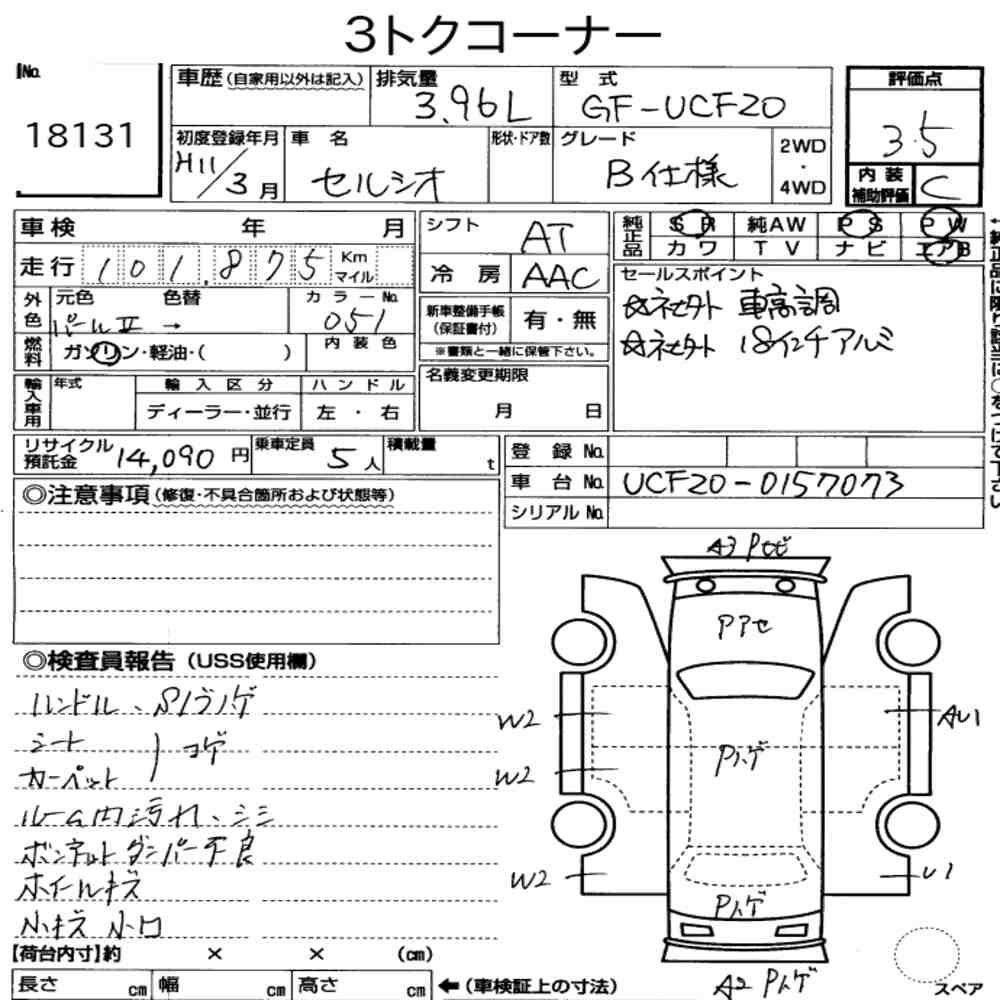 3トクコーナー
No. 18131
車歴 (自家用以外は記入) 排気量 3.96L 型式 GF-UCF20
初度登録年月 H11/3月 車名 セルシオ 形状・ドア数 グレード B仕様 2WD・4WD
評価点 3.5
内装補助評価 C
車検 年 月
走行 101,875 Km マイル
外色 元色 パールⅡ → 色替 カラーNo. 051
燃料 ガソリン・軽油・( ) 内装色
輸入車用 年式 輸入区分 ディーラー・並行 ハンドル 左・右
シフト AT
冷房 AAC
新車整備手帳(保証書付) 有・無
※書類と一緒に保管下さい。
名義変更期限 月 日
純正品 SR 純AW PS PW
カワ TV ナビ エアB
セールスポイント
☆ネセクト 車高調
☆ネセクト 18インチアルミ
リサイクル預託金 14,090円 乗車定員 5人 積載量 t
登録No.
車台No. UCF20-0157073
シリアルNo.
◎注意事項 (修復・不具合箇所および状態等)
◎検査員報告 (USS使用欄)
ハンドル、
シート
カーペット コゲ
ルーム内汚れ、シミ
ボンネットダンパー不良
ホイールキズ
小キズ 小凹
A3 Pセビ
Pアセ
W2
AU1
W2
Pハゲ
W2
U1
Pハゲ
A2 Pハゲ
スペア
【荷台内寸】約 × × (cm)
長さ cm 幅 cm 高さ cm ←(車検証上の寸法)